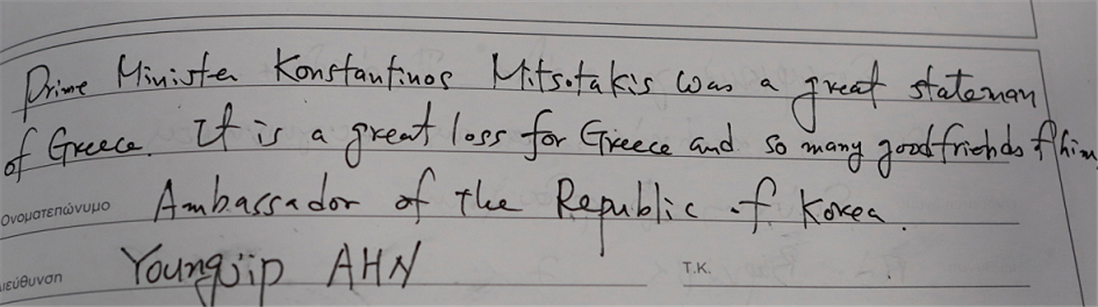 Prime Minister Konstantinos Mitsotakis was a great stateman
of Greece. It is a great loss for Greece and so many good friends of him
Ονοματεπώνυμο Ambassador of the Republic of Korea.
ιεύθυνση Youngjip AHN Τ.Κ.